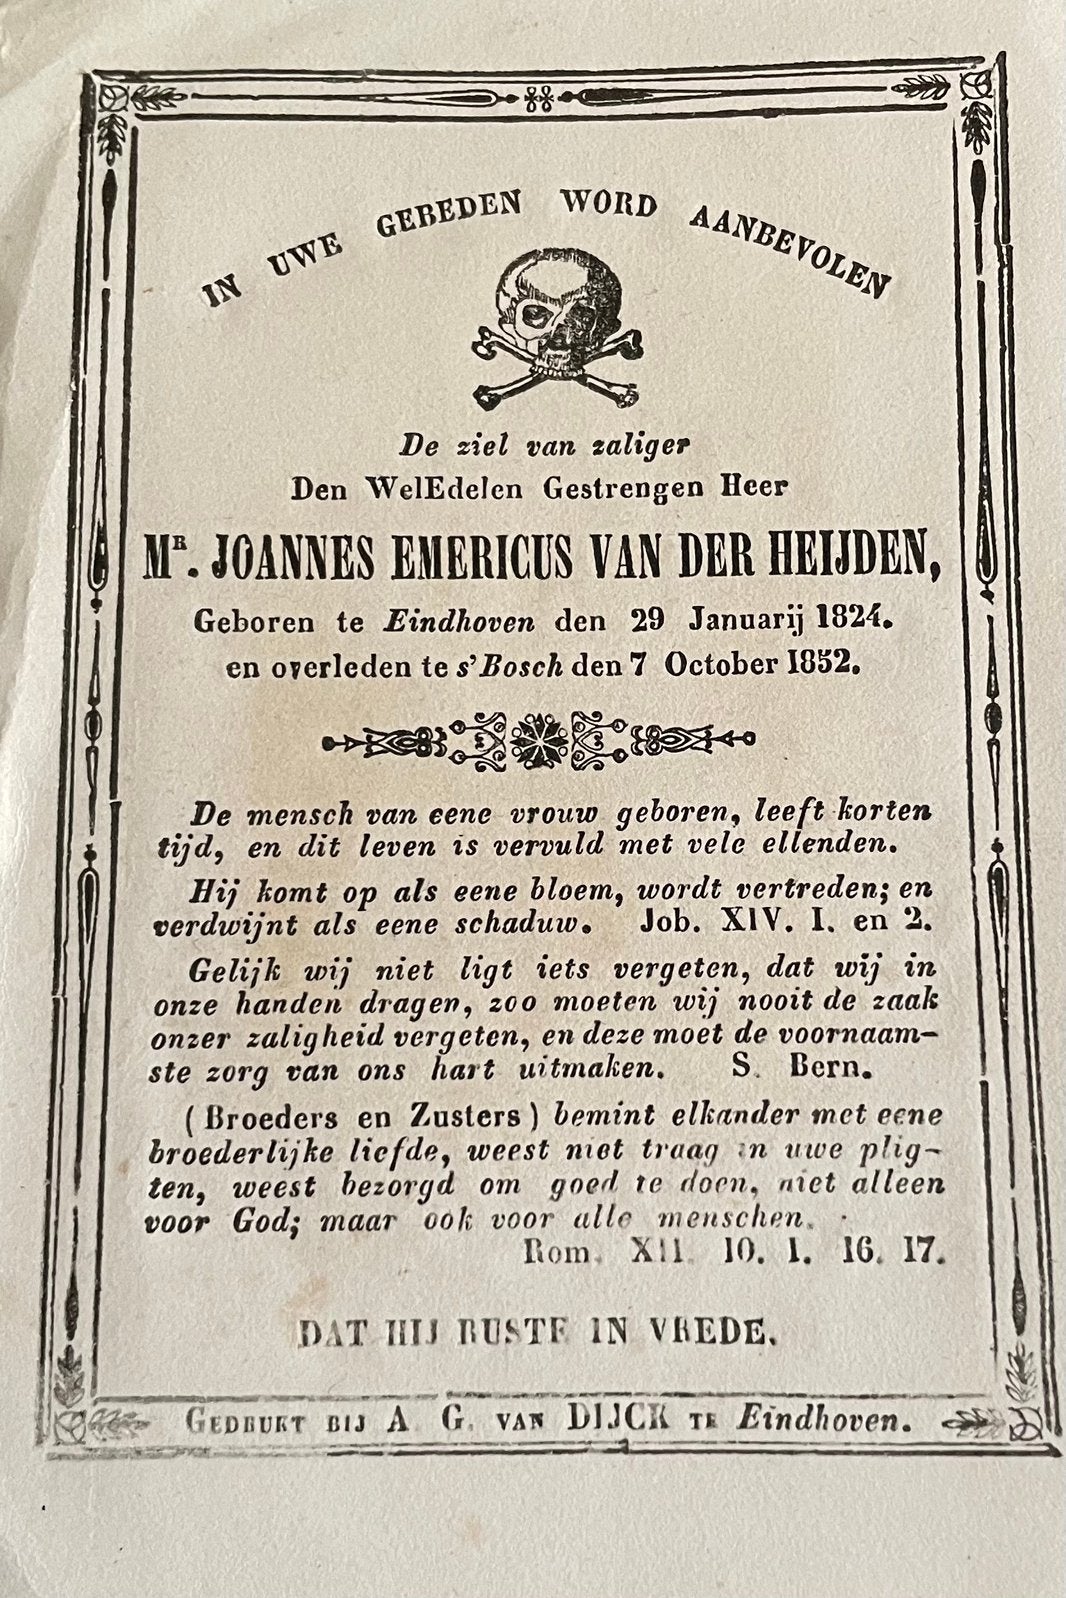 IN UWE GEBEDEN WORD AANBEVOLEN
De ziel van zaliger
Den WelEdelen Gestrengen Heer
MR. JOANNES EMERICUS VAN DER HEIJDEN,
Geboren te Eindhoven den 29 Januarij 1824.
en overleden te s'Bosch den 7 October 1852.
De mensch van eene vrouw geboren, leeft korten
tijd, en dit leven is vervuld met vele ellenden.
Hij komt op als eene bloem, wordt vertreden; en
verdwijnt als eene schaduw. Job. XIV. I. en 2.
Gelijk wij niet ligt iets vergeten, dat wij in
onze handen dragen, zoo moeten wij nooit de zaak
onzer zaligheid vergeten, en deze moet de voornaam-
ste zorg van ons hart uitmaken. S. Bern.
(Broeders en Zusters) bemint elkander met eene
broederlijke liefde, weest niet traag in uwe plig-
ten, weest bezorgd om goed te doen, niet alleen
voor God; maar ook voor alle menschen.
Rom. XII. 10. 1. 16. 17.
DAT HIJ RUSTE IN VREDE.
GEDRUKT BIJ A. G. VAN DIJCK TE Eindhoven.